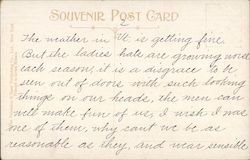 SOUVENIR POST CARD
The weather in Vt is getting fine.
But the ladies hats are growing worse
each season, it is a disgrace to be
seen out of doors with such looking
things on our heads, the men can
well make fun of us, I wish I was
one of them, why cant we be as
reasonable as they, and wear sensible